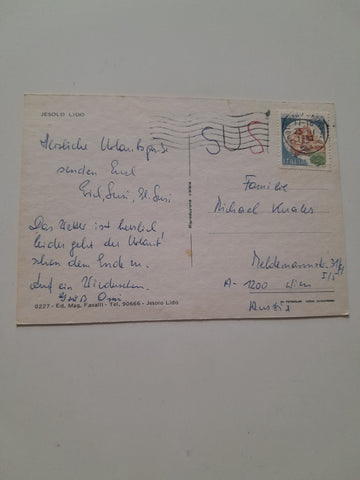 JESOLO LIDO
Herzliche Urlaubsgrüße
senden Euch
Susi
Das Wetter ist herrlich,
leider geht der Urlaub
schon dem Ende zu.
Auf ein Wiedersehen.
Gruß Omi
0227 - Ed. Mag. Favalli - Tel. 90666 - Jesolo Lido
Riproduzione vietata
SUS
ITALIA
Familie
Michael
Meldemannstr.
A-1200 Wien
Austria